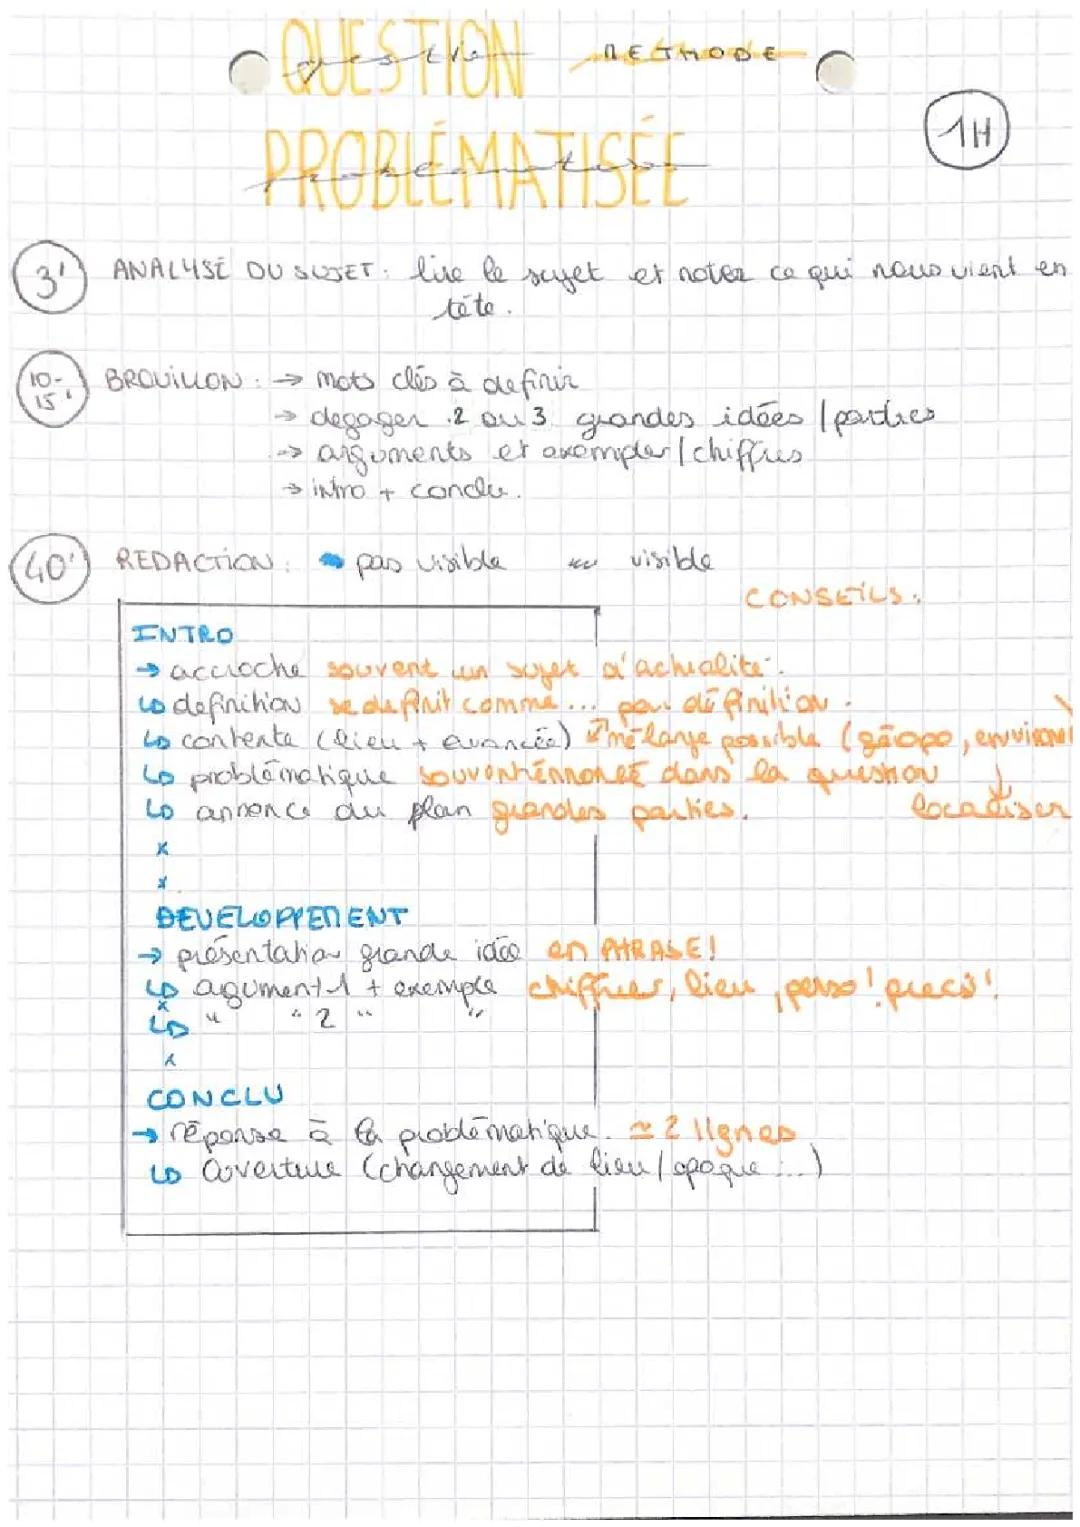 QUESTION
METHODE
PROBLÉMATISÉE
1H
3' ANALYSE DU SUJET : lire le sujet et noter ce qui nous vient en
tête.
10-15' BROUILLON : → mots clés à definir
→ degager 2 ou 3 grandes idées / parties
→ arguments et exemples / chiffres
→ intro + conclu.
40' REDACTION : pas visible visible
CONSEILS :
INTRO
→ accroche souvent un sujet d'actualité.
↳ definition se definit comme ... par définition.
↳ contexte (lieu + avancée) mélange possible (géopo, environ
↳ problématique souvent énnoncée dans la question
localiser
↳ annonce du plan grandes parties.
x
x
DEVELOPPEMENT
→ présentation grande idée en PHRASE!
↳ agument 1 + exemple chiffres, lieu, perso! precis!
x
↳ " " 2 " "
x
CONCLU
→ réponse à la problématique. ≃ 2 lignes
↳ Ouverture (changement de lieu / epoque ...)